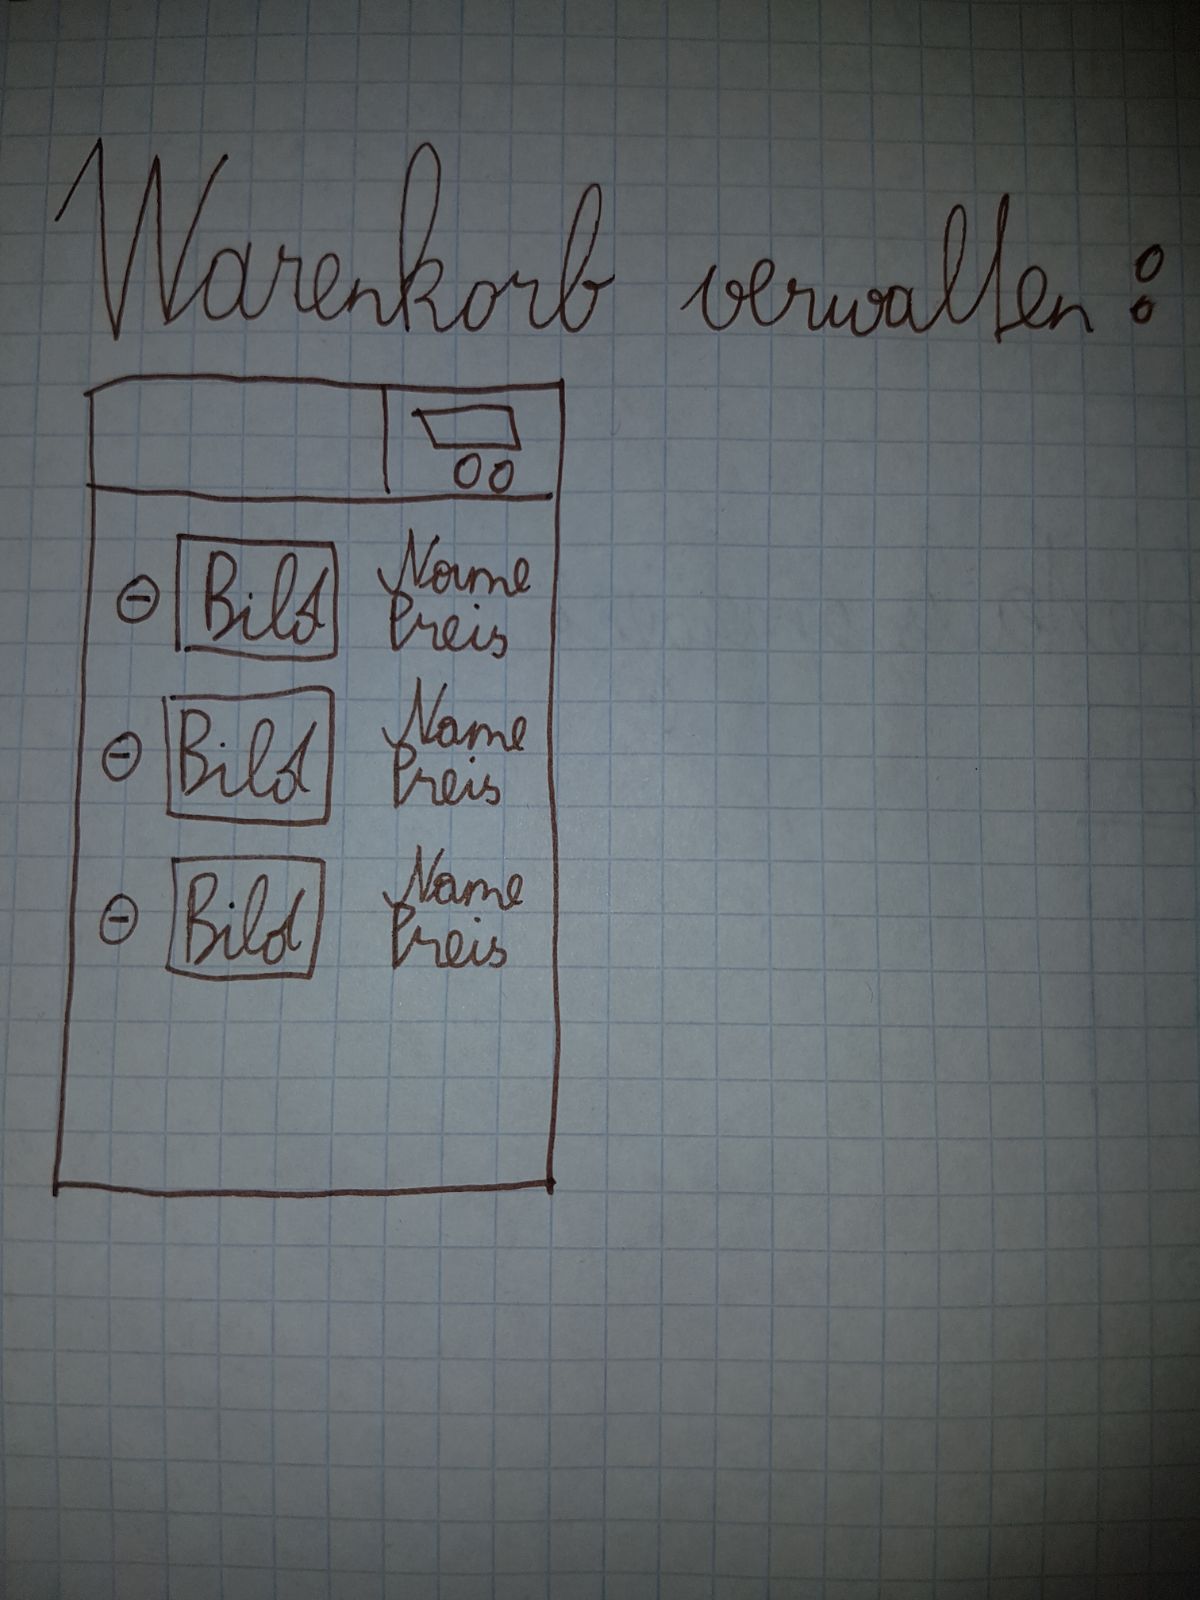 Warenkorb verwalten:
Bild Name
Preis
Bild Name
Preis
Bild Name
Preis